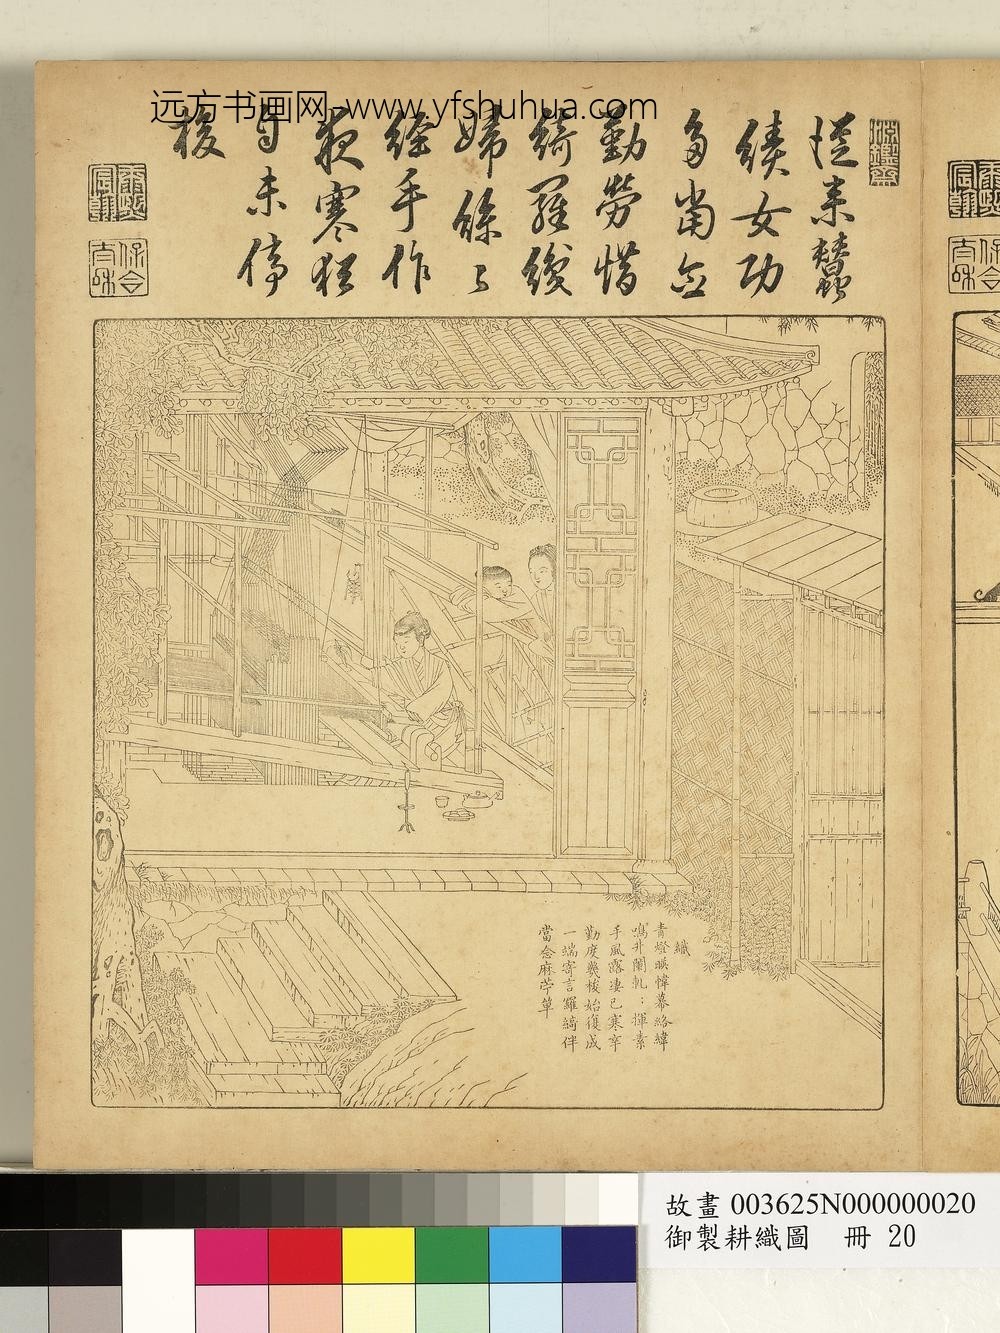 远方书画网-www.yfshuhua.com
從来蠶
績女功
多當念
勤勞惜
綺羅織
婦絲〻
經手作
夜寒猶
自未停
梭
淵鑒齋
康熙
宸翰
保合
太和
織
青燈暎幃幕絡緯
鳴井闌軋〻揮素
手風露凄已寒辛
勤度幾梭始復成
一端寄言羅綺伴
當念麻苧單
故畫 003625N000000020
御製耕織圖 冊 20